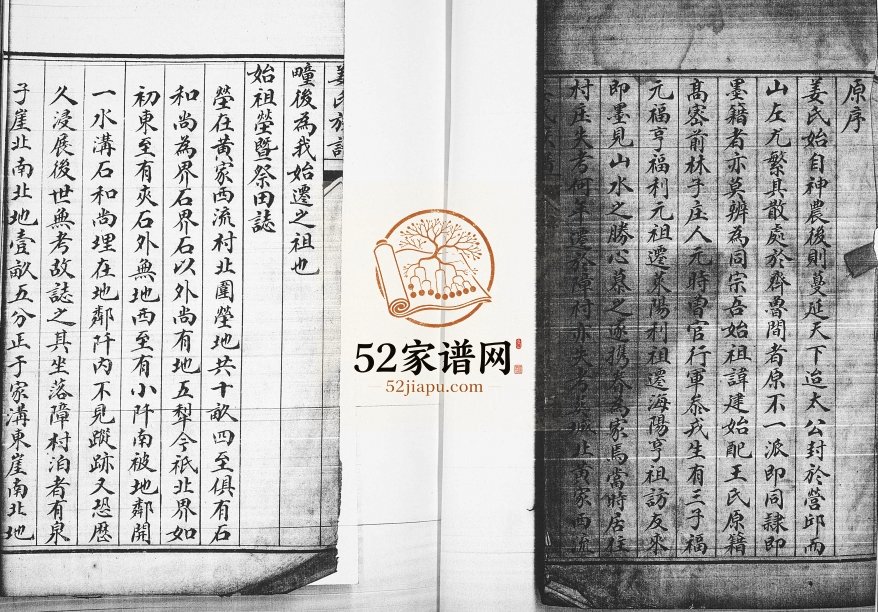 原序
姜氏始自神農後則蔓延天下迨太公封於營邱而
山左尤繁其散處於齊魯間者原不一派即同隸即
墨籍者亦莫辨為同宗吾始祖諱建始配王氏原籍
高密前林子庄人元時曾官行軍叅戎生有三子福
元福亨福利元祖遷萊陽利祖遷海陽亨祖訪友來
即墨見山水之勝心慕之遂携眷為家焉當時居住
村庄失考何年遷 村亦失 城北黄家西流
姜氏族譜
疃後為我始遷之祖也
始祖塋暨祭田誌
塋在黄家西流村北圍塋地共十畝四至俱有石
和尚為界石界石以外尚有地五犁今祇北界如
初東至有夾石外無地西至有小阡南被地鄰開
一水溝石和尚埋在地鄰阡內不見蹤跡又恐歷
久浸展後世無考故誌之其坐落障村泊者有泉
子崖北南北地壹畝五分正于家溝東崖南北地
52家谱网
52jiapu.com